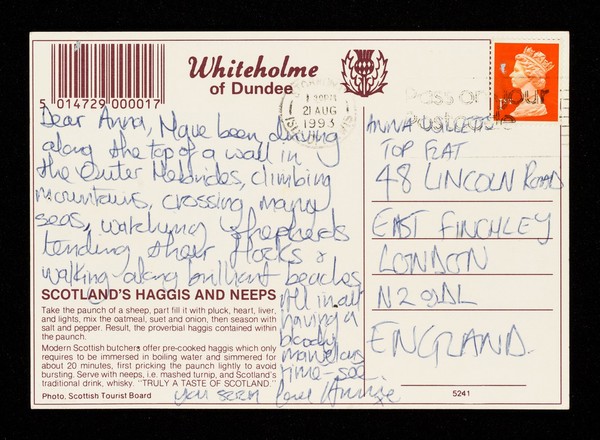 Whiteholme
of Dundee
5 014729 000017
21 AUG
1993
Pass on your
Postcode
Dear Anna, Have been driving
along the top of a wall in
the Outer Hebrides, climbing
mountains, crossing many
seas, watching shepherds
tending their flocks &
walking along brilliant beaches
All in all
having a
bloody
marvelous
time - see
you soon love
SCOTLAND'S HAGGIS AND NEEPS
Take the paunch of a sheep, part fill it with pluck, heart, liver,
and lights, mix the oatmeal, suet and onion, then season with
salt and pepper. Result, the proverbial haggis contained within
the paunch.
Modern Scottish butchers offer pre-cooked haggis which only
requires to be immersed in boiling water and simmered for
about 20 minutes, first pricking the paunch lightly to avoid
bursting. Serve with neeps, i.e. mashed turnip, and Scotland's
traditional drink, whisky. "TRULY A TASTE OF SCOTLAND."
Photo, Scottish Tourist Board
ANNA
TOP FLAT
48 LINCOLN ROAD
EAST FINCHLEY
LONDON
N2 9DL
ENGLAND
5241